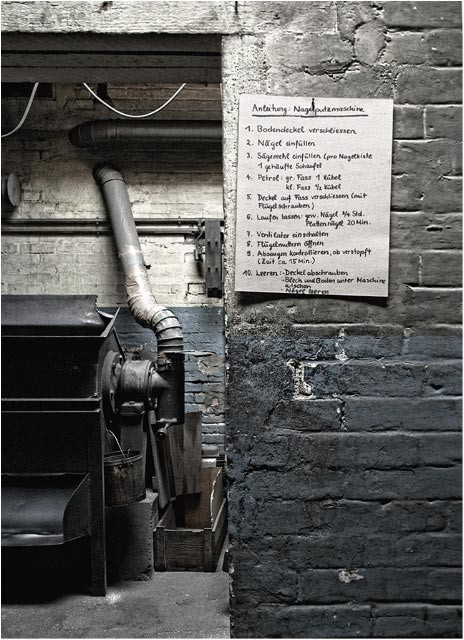 Anleitung: Nagelputzmaschine
1. Bodendeckel verschliessen
2. Nägel einfüllen
3. Sägemehl einfüllen (pro Nagelkiste
1 gehäufte Schaufel
4. Petrol: gr. Fass 1 Kübel
kl. Fass ½ Kübel
5. Deckel auf Fass verschliessen (mit
Flügelschrauben)
6. Laufen lassen: gew. Nägel ¾ Std.
Plattennägel 20 Min.
7. Ventilator einschalten
8. Flügelmuttern öffnen
9. Absaugen kontrollieren, ob verstopft
(Zeit ca. 15 Min.)
10. Leeren: - Deckel abschrauben
- Blech und Boden unter Maschine
wischen
- Nägel leeren